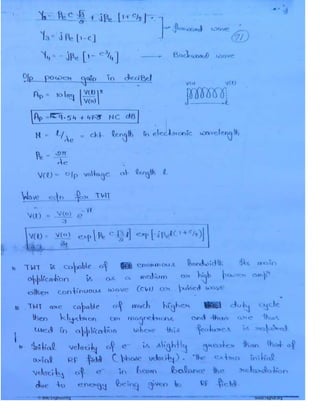 γ₂ = βe c √3/2 + jβe [1+c/2]
forward wave
71
γ₃ = jβe [1-c]
γ₄ = -jβe [1 - c³/4] → Backward wave
O/p power gain in decibel
Ap = 10 log |V(l)/V(0)|²
V(0) V(l)
Ap = -9.54 + 47.3 NC dB
l
N = l/λe = ckt. length in electronic wavelength
βe = 2π/λe
V(l) = O/p voltage at length l
Wave eqn for TWT
V(l) = V(0)/3 e
V(l) = V(0)/3 exp [βe c √3/2 l] exp [-jβe l (1+c/2)]
TWT is capable of enormous Bandwidth. Its main
application is as a medium or high power ampr
either continuous wave (CW) or pulsed wave
TWT are capable of much higher duty cycle
then klystrons or magnetrons and thus are thus
used in application where this features is required.
Initial velocity of e⁻ is slightly greater than that of
axial RF field (phase velocity). The extra initial
velocity of e⁻ in beam balance the retardation
due to energy being given to RF field